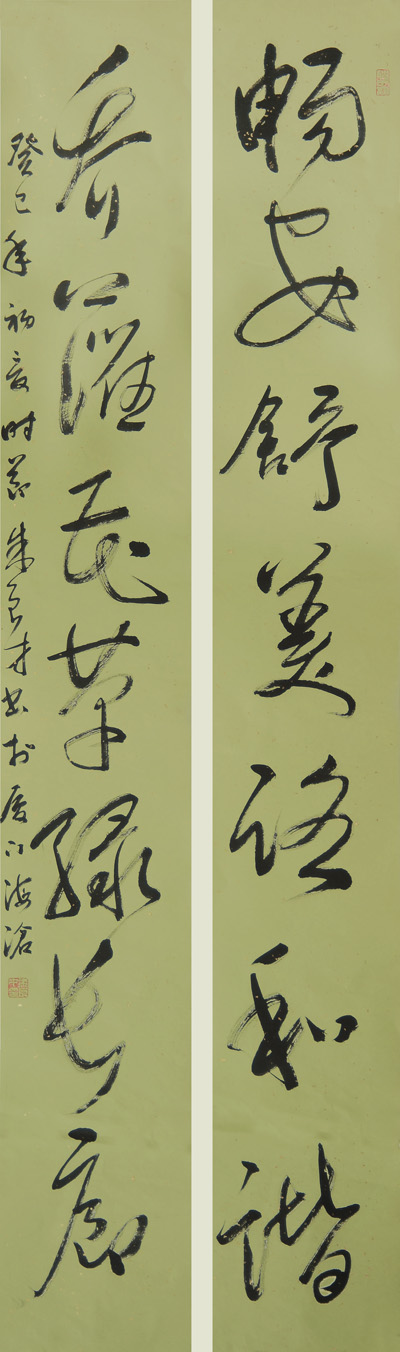 畅安舒美路和谐
乔灌花草绿长廊
癸巳年初夏时节朱良才书於厦门海沧